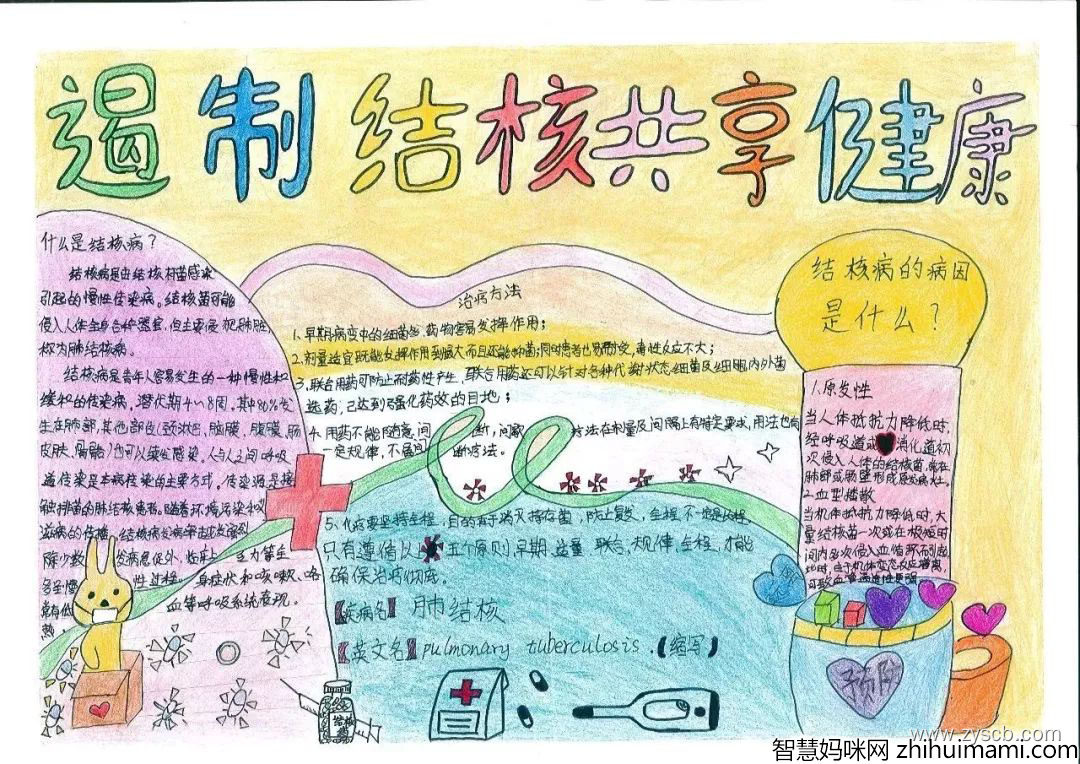 遏制结核共享健康
什么是结核病？
结核病是由结核杆菌感染
引起的慢性传染病。结核菌可能
侵入人体全身各种器官，但主要侵犯肺脏，
称为肺结核病。
结核病是青年人容易发生的一种慢性和
缓和的传染病，潜伏期4～8周。其中80%发
生在肺部，其他部位（颈淋巴、脑膜、腹膜、肠
皮肤、骨骼）也可以继发感染。人与人之间呼吸
道传染是本病传染的主要方式。传染源是接
触排菌的肺结核患者。随着环境污染和
滋病的传播，结核病发病率
除少数 发病急促外，临床上 多为
多呈慢 性过程。 身症状和咳嗽、咯
常有低 血等呼吸系统表现。
热，
治疗方法
1、早期病变中的细菌多，药物容易发挥作用；
2、剂量适宜既能发挥作用到最大而且还能杀菌；同时患者也易耐受，毒性反应不大；
3、联合用药可防止耐药性产生，联合用药还可以针对各种代谢状态细菌及细胞内外菌
选药，已达到强化药效的目地；
4、用药不能随意间 断，间歇 方法在剂量及间隔上有特定要求，用法也有
一定规律，不属间 断疗法。
5、化疗要坚持全程，目的在于消灭持存菌，防止复发，全程不一定是长程，
只有遵循以上 五个原则，早期、适量、联合、规律、全程，才能
确保治疗彻底。
【疾病名】肺结核
【英文名】pulmonary tuberculosis.（缩写）
结核病的病因
是什么？
1.原发性
当人体抵抗力降低时，
经呼吸道或 消化道初
次侵入人体的结核菌，常在
肺部或肠壁形成原发病灶。
2.血型播散
当机体抵抗力降低时，大
量结核菌一次或在极短时
间内多次侵入血循环而引起，
此时，由于机体变态反应增高，
可致血管通透性增强
预防
结核
药
www.zyscb.com
智慧妈咪网 zhihuimami.com